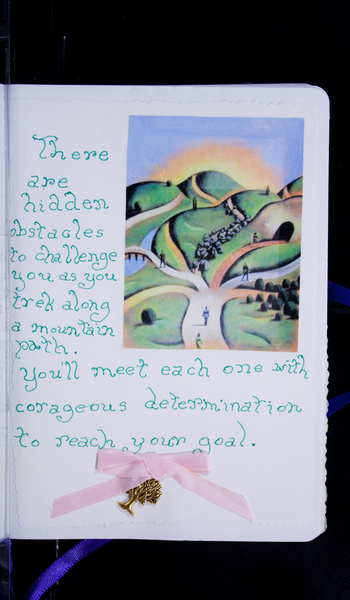 There
are
hidden
obstacles
to challenge
you as you
trek along
a mountain
path.
You'll meet each one with
corageous determination
to reach your goal.